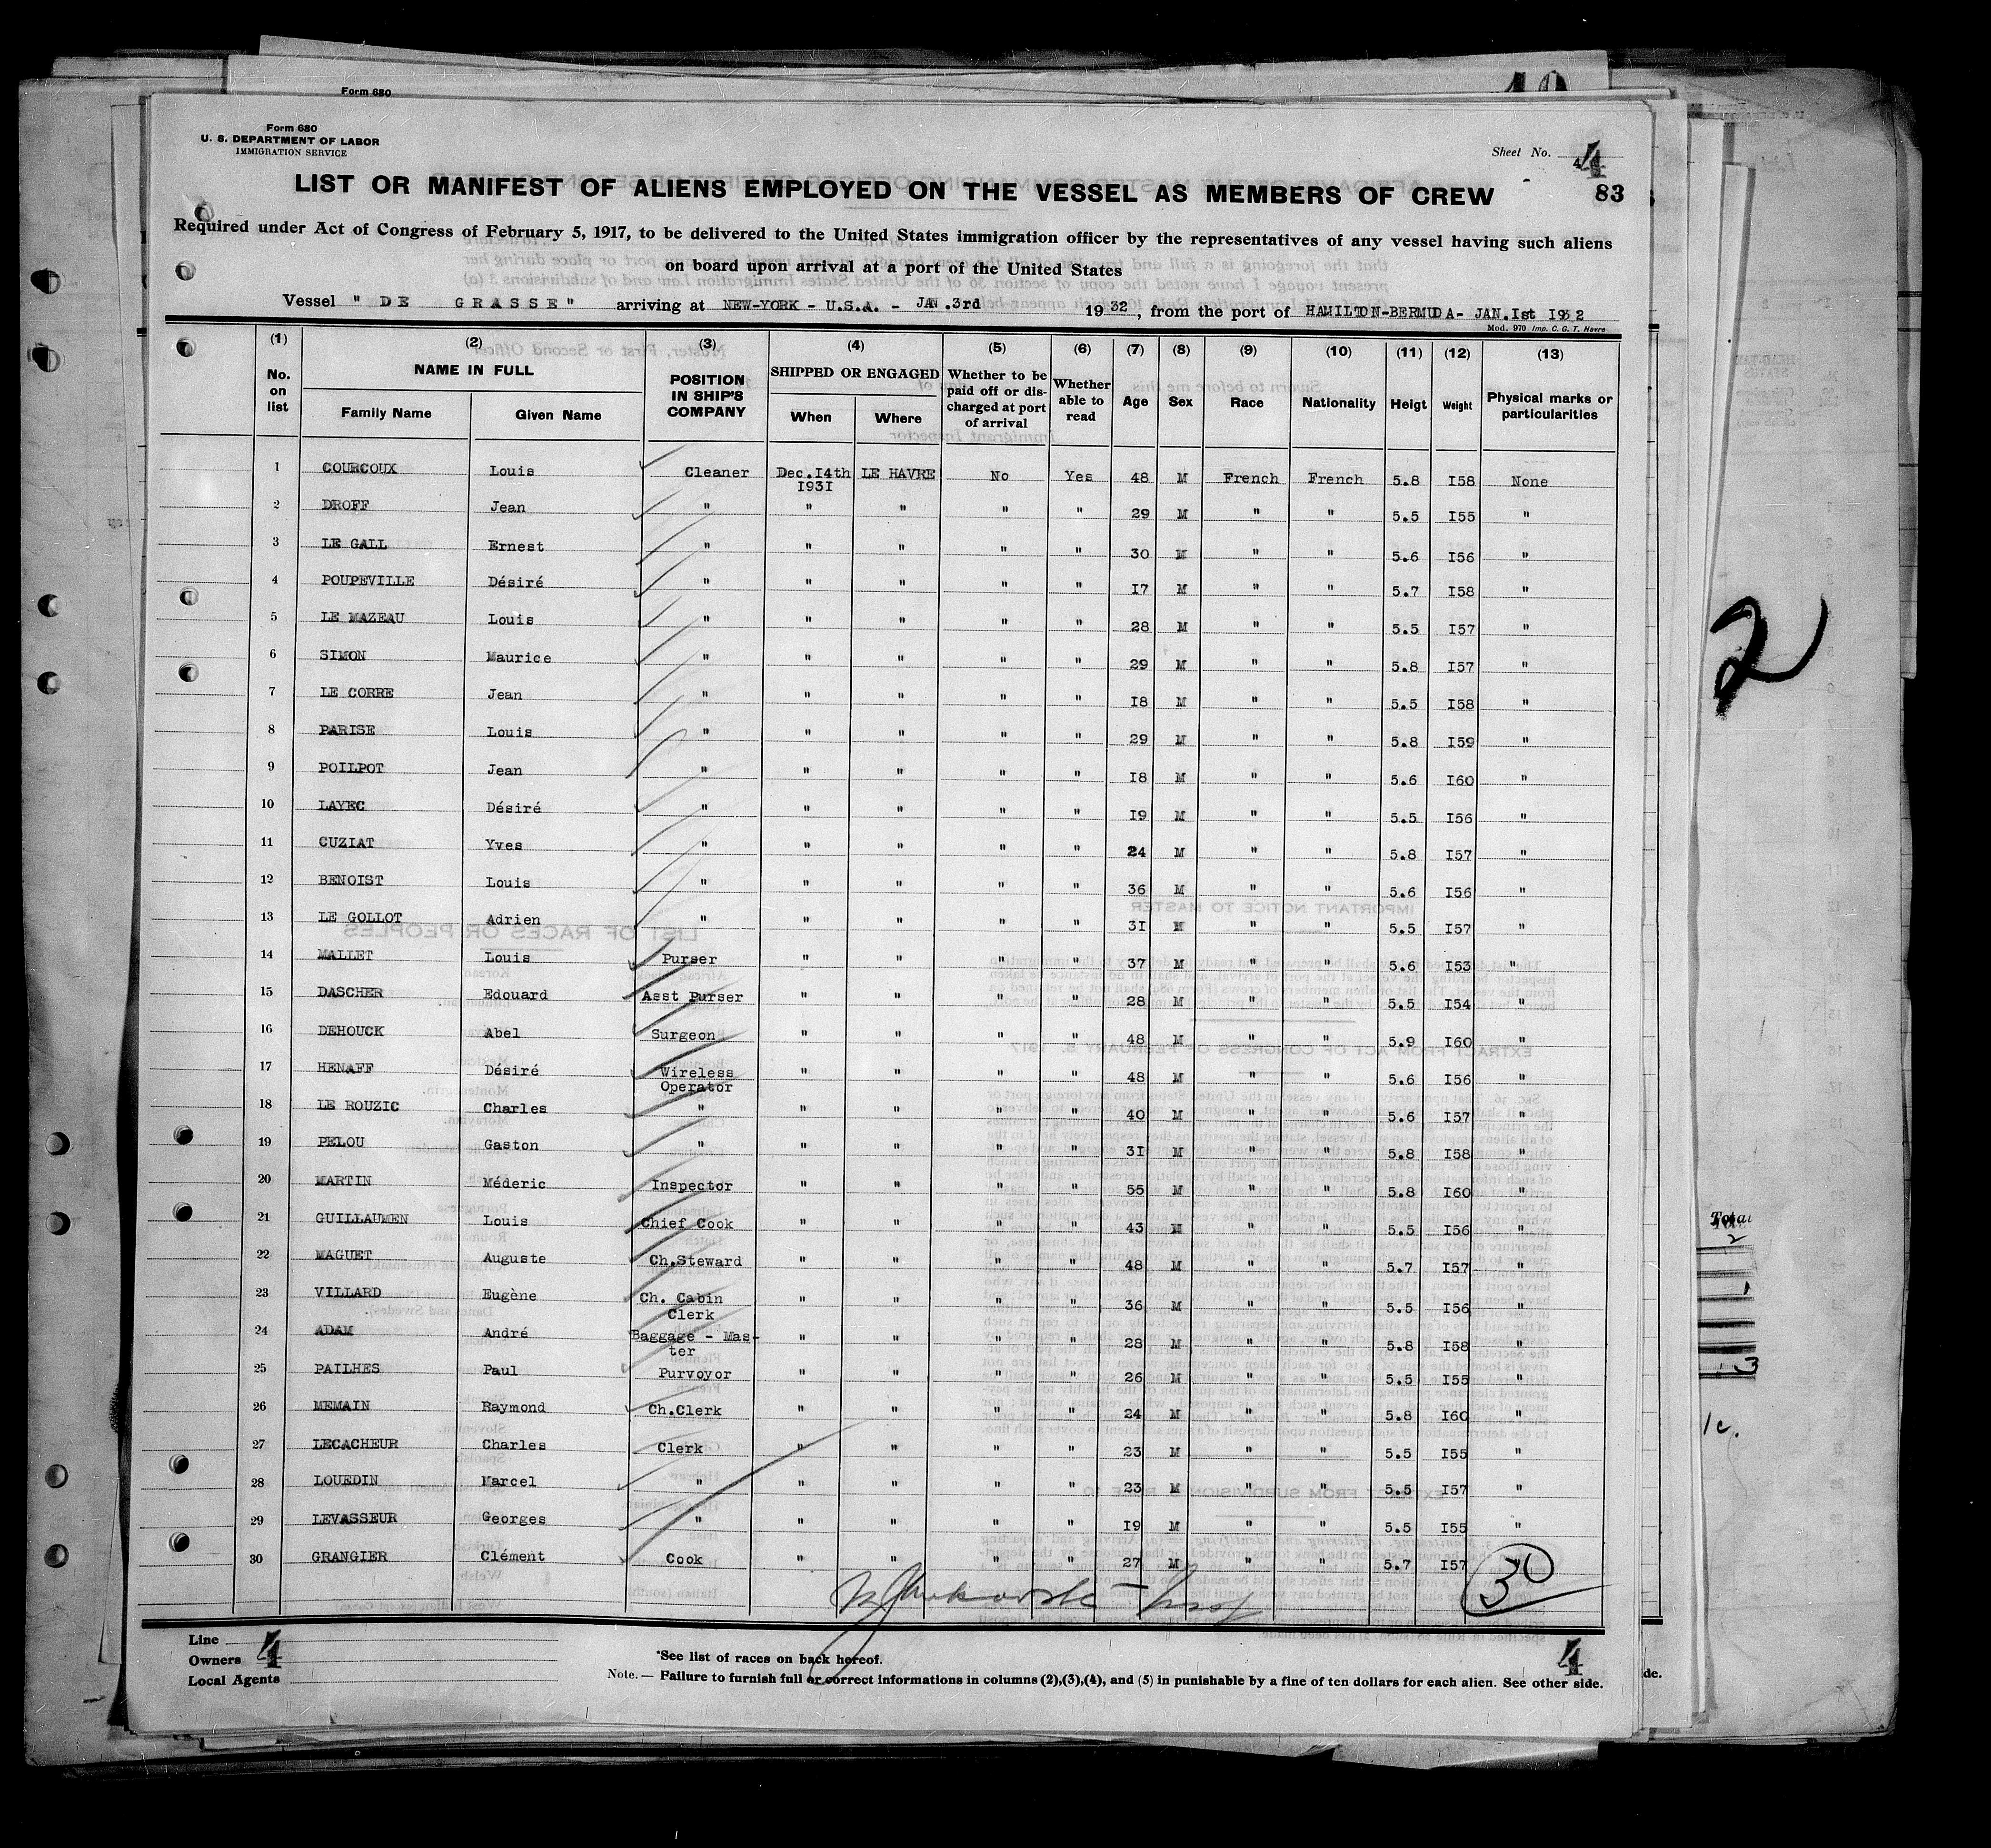 Form 680
Form 680
U. S. DEPARTMENT OF LABOR
IMMIGRATION SERVICE
Sheet No. 4
83
LIST OR MANIFEST OF ALIENS EMPLOYED ON THE VESSEL AS MEMBERS OF CREW
Required under Act of Congress of February 5, 1917, to be delivered to the United States immigration officer by the representatives of any vessel having such aliens
on board upon arrival at a port of the United States
Vessel " DE GRASSE" arriving at NEW-YORK - U.S.A. - JAN .3rd 19 32 , from the port of HAMILTON-BERMUDA- JAN.Ist I932
Mod. 970 Imp. C. G. T. Havre
(1) (2) (3) (4) (5) (6) (7) (8) (9) (10) (11) (12) (13)
No. on list NAME IN FULL Family Name Given Name POSITION IN SHIP'S COMPANY SHIPPED OR ENGAGED When Where Whether to be paid off or discharged at port of arrival Whether able to read Age Sex Race Nationality Heigt Weight Physical marks or particularities
1 COURCOUX Louis Cleaner Dec.I4th I93I LE HAVRE No Yes 48 M French French 5.8 I58 None
2 DROFF Jean " " " " " 29 M " " 5.5 I55 "
3 LE GALL Ernest " " " " " 30 M " " 5.6 I56 "
4 POUPEVILLE Désiré " " " " " I7 M " " 5.7 I58 "
5 LE MAZEAU Louis " " " " " 28 M " " 5.5 I57 "
6 SIMON Maurice " " " " " 29 M " " 5.8 I57 "
7 LE CORRE Jean " " " " " I8 M " " 5.5 I58 "
8 PARISE Louis " " " " " 29 M " " 5.8 I59 "
9 POILPOT Jean " " " " " I8 M " " 5.6 I60 "
10 LAYEC Désiré " " " " " I9 M " " 5.5 I56 "
11 CUZIAT Yves " " " " " 24 M " " 5.8 I57 "
12 BENOIST Louis " " " " " 36 M " " 5.6 I56 "
13 LE GOLLOT Adrien " " " " " 3I M " " 5.5 I57 "
14 MALLET Louis Purser " " " " 37 M " " 5.6 I53 "
15 DASCHER Edouard Asst Purser " " " " 28 M " " 5.5 I54 "
16 DEHOUCK Abel Surgeon " " " " 48 M " " 5.9 I60 "
17 HENAFF Désiré Wireless Operator " " " " 48 M " " 5.6 I56 "
18 LE ROUZIC Charles " " " " " 40 M " " 5.6 I57 "
19 PELOU Gaston " " " " " 3I M " " 5.8 I58 "
20 MARTIN Méderic Inspector " " " " 55 M " " 5.8 I60 "
21 GUILLAUMEN Louis Chief Cook " " " " 43 M " " 5.5 I56 "
22 MAGUET Auguste Ch.Steward " " " " 48 M " " 5.7 I57 "
23 VILLARD Eugène Ch. Cabin Clerk " " " " 36 M " " 5.5 I56 "
24 ADAM André Baggage - Master " " " " 28 M " " 5.8 I58 "
25 PAILHES Paul Purvoyor " " " " 26 M " " 5.5 I55 "
26 MEMAIN Raymond Ch.Clerk " " " " 24 M " " 5.8 I60 "
27 LECACHEUR Charles Clerk " " " " 23 M " " 5.5 I55 "
28 LOUEDIN Marcel " " " " " 23 M " " 5.5 I57 "
29 LEVASSEUR Georges " " " " " I9 M " " 5.5 I55 "
30 GRANGIER Clément Cook " " " " 27 M " " 5.7 I57
30
Line
Owners 4
Local Agents
*See list of races on back hereof.
Note. — Failure to furnish full or correct informations in columns (2),(3),(4), and (5) in punishable by a fine of ten dollars for each alien. See other side.
4
2
Total
2
3
de.